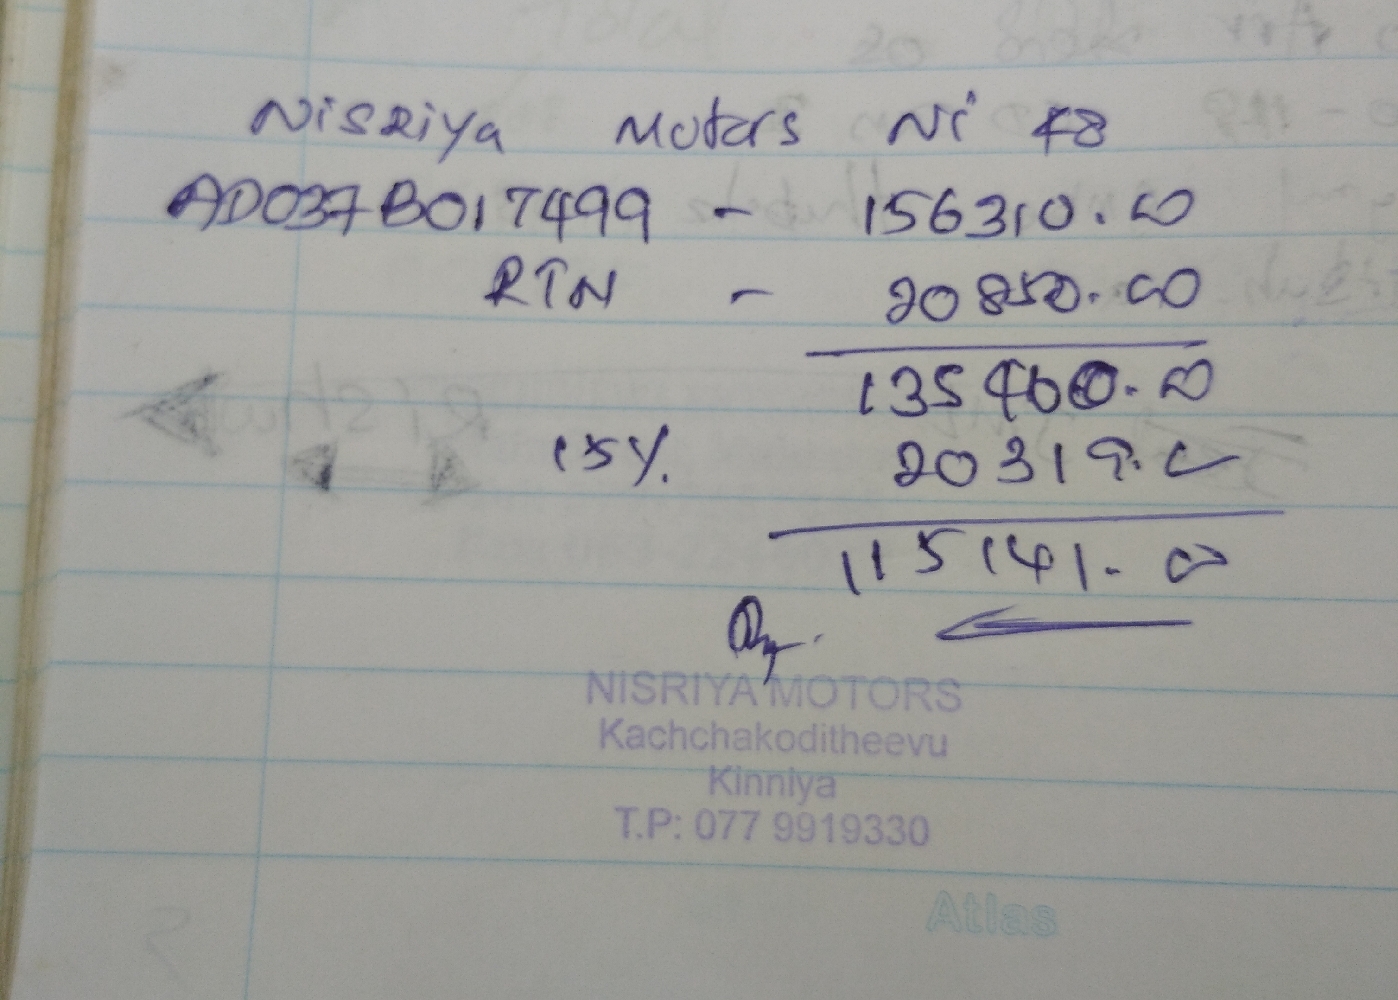 Nisriya Motors Ni 48
AD037B017499 - 156310.00
RTN - 20850.00
135460.00
15% 20319.00
115141.00
NISRIYA MOTORS
Kachchakoditheevu
Kinniya
T.P: 077 9919330
Atlas